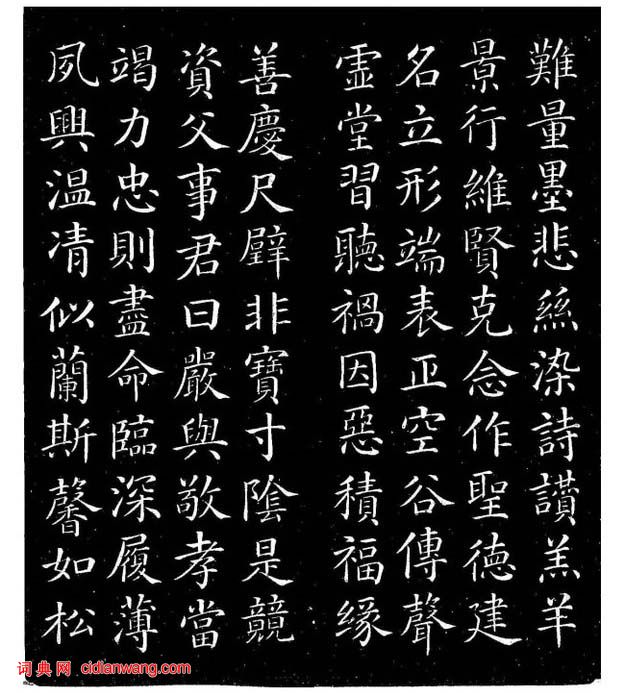 難量墨悲絲染詩讃羔羊
景行維賢克念作聖德建
名立形端表正空谷傳聲
虛堂習聽禍因惡積福緣
善慶尺璧非寶寸陰是競
資父事君曰嚴與敬孝當
竭力忠則盡命臨深履薄
夙興温凊似蘭斯馨如松
词典网 cidianwang.com